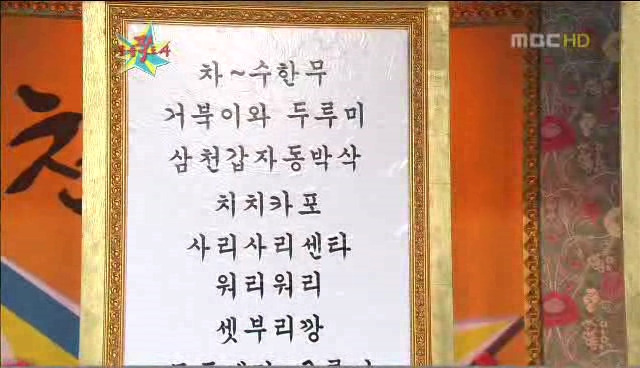 MBC HD
차~수한무
거북이와 두루미
삼천갑자동박삭
치치카포
사리사리센타
워리워리
셋부리깡